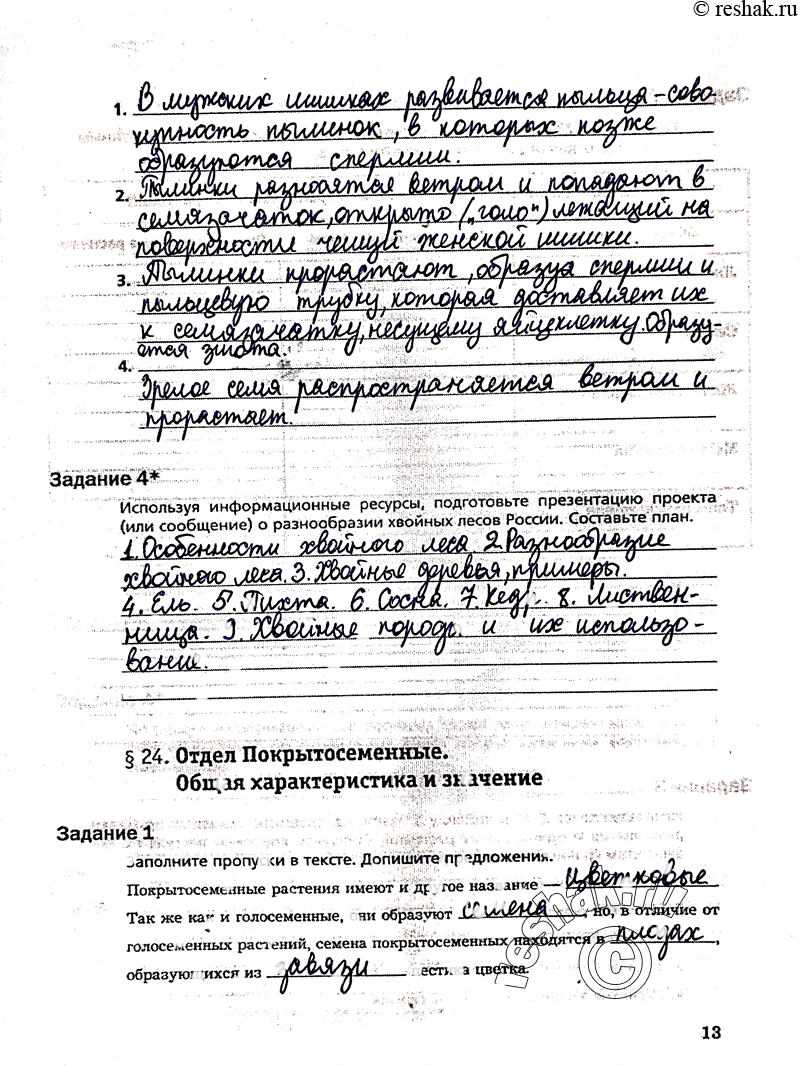 © reshak.ru
1. В мужских шишках развивается пыльца – сово
купность пылинок, в которых позже
образуются спермии.
2. Пылинки разносятся ветром и попадают в
семязачаток, открыто („голо") лежащий на
поверхности чешуй женской шишки.
3. Пылинки прорастают, образуя спермии и
пыльцевую трубку, которая доставляет их
к семязачатку, несущему яйцеклетку. Образу-
ется зигота.
4.
Зрелое семя распространяется ветром и
прорастает.
Задание 4*
Используя информационные ресурсы, подготовьте презентацию проекта
(или сообщение) о разнообразии хвойных лесов России. Составьте план.
1. Особенности хвойного леса 2. Разнообразие
хвойного леса. 3. Хвойные деревья, примеры.
4. Ель. 5. Пихта. 6. Сосна. 7. Кедр. 8. Листвен-
ница. 9. Хвойные породы и их использо-
вание.
§ 24. Отдел Покрытосеменные.
Общая характеристика и значение
Задание 1
Заполните пропуски в тексте. Допишите предложения.
Покрытосеменные растения имеют и другое название — цветковые
Так же как и голосеменные, они образуют семена, но, в отличие от
голосеменных растений, семена покрытосеменных находятся в плодах,
образующихся из завязи пестика цветка.
reshak.ru
©
13